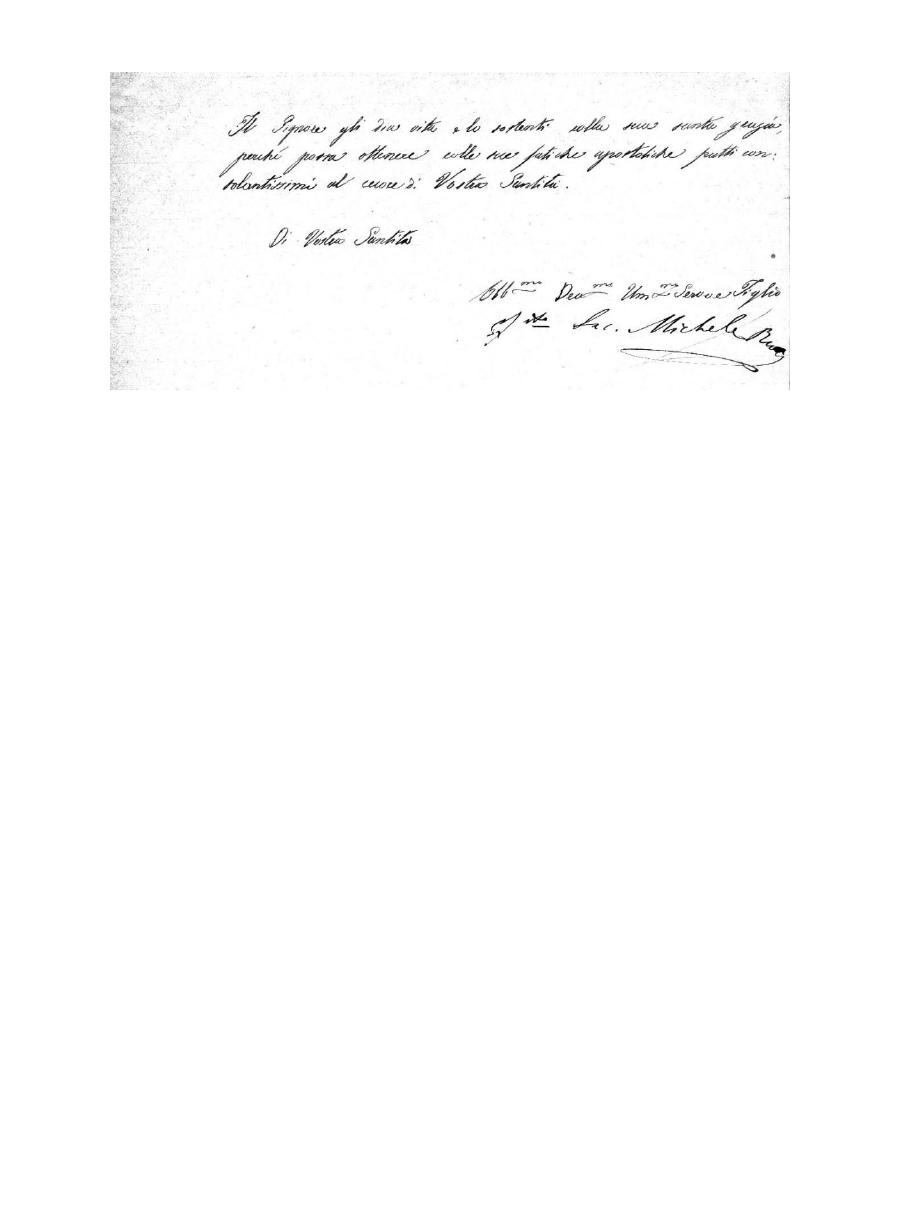 Il Signore gli dia vita e lo sostenti colla sua santa grazia,
perché possa ottenere colle sue fatiche apostoliche frutti con:
solantissimi al cuore di Vostra Santità.
Di Vostra Santità
Obb.mo Dev.mo Um.mo Servo e Figlio
Sac. Michele Rua